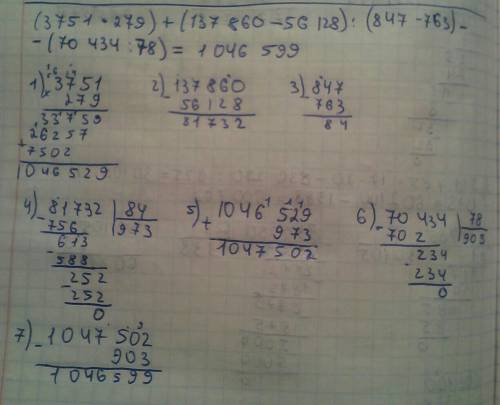 (3751 · 279) + (137 860 - 56 128) : (847 - 763) -
- (70 434 : 78) = 1 046 599
1) 3751
279
33759
26257
+ 7502
1046529
2) - 137860
56128
81732
3) - 847
763
84
4) - 81732 | 84
756 | 973
613
- 588
252
- 252
0
5) + 1046 529
973
1047502
6) - 70 434 | 78
702 | 903
- 234
234
0
7) - 1047 502
903
1046599